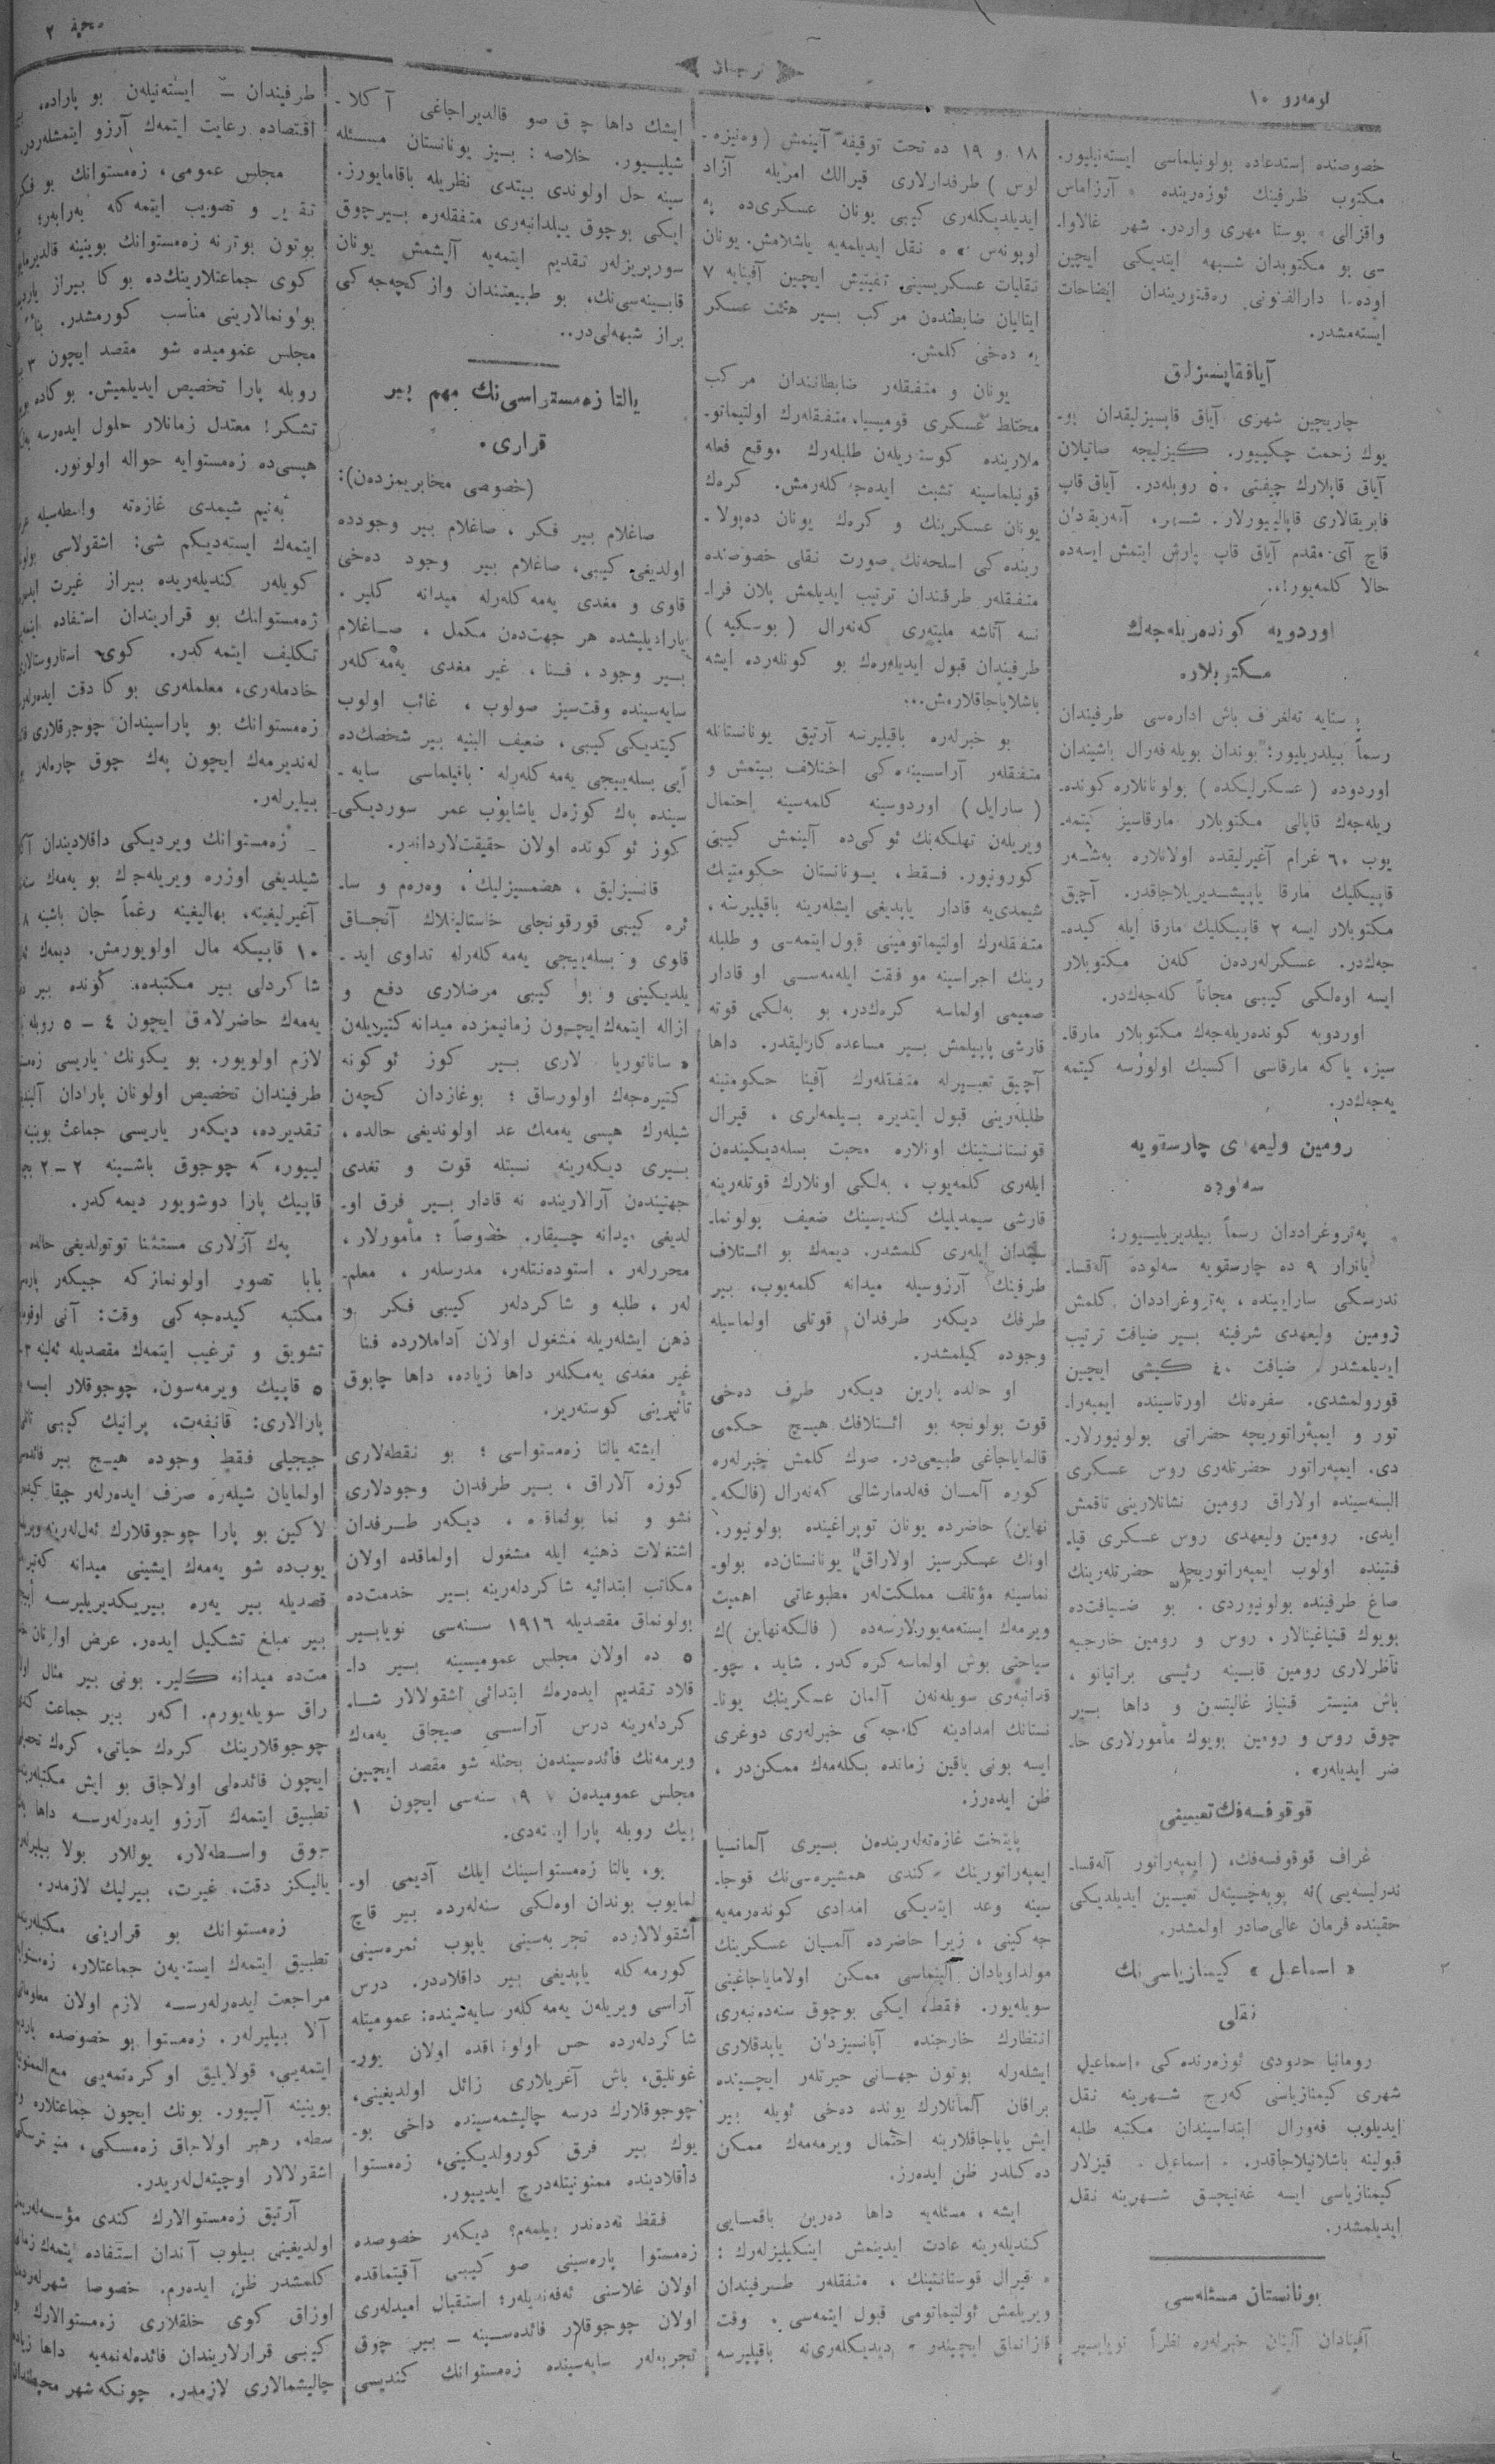 صحیفه ۲
ترجمان
نومه‌رو ۱۰
خصوصنده إستدعاده بولونیلماسی ایسته‌نیلیور.
مکتوب ظرفینك ئوزه‌رینده « آرزاماس
واقزالی » پوستا مهری واردر. شهر غالاوا-
سی بو مکتوبدان شبهه ایتدیکی ایچین
اوده‌سا دارالفنونی ره‌قتوریندان ایضاحات
ایسته‌مشدر.
آیاققاپسیزلق
چاریچین شهری آیاق قاپسیزلیقدان بو-
یوك زحمت چکییور. کیزلیجه صاتیلان
آیاق قاپلارك چیفتی ۵۰ روبله‌در. آیاق قاپ
فابریقالاری قاپالییورلار. شهره آمه‌ریقادان
قاچ آی مقدم آیاق قاپ پارش ایتمش ایسه‌ده
حالا کلمه‌یور!..
اوردویه کونده‌ریله‌جه‌ك
مکتوبلاره
پوستایه ته‌لغراف باش اداره‌سی طرفیندان
رسماً بیلدریلیور: بوندان بویله فه‌رال باشیندان
اوردوده (عسکرلیکده) بولونانلاره کونده-
ریله‌جه‌ك قاپالی مکتوبلار مارقاسیز کیتمه-
یوب ۶۰ غرام آغیرلیقده اولانلاره به‌شه‌ر
قاپیکلیك مارقا یاپیشدیریلاجاقدر. آچیق
مکتوبلار ایسه ۲ قاپیکلیك مارقا ایله کیده-
جه‌ك‌در. عسکرلرده‌ن کله‌ن مکتوبلار
ایسه اوه‌لکی کیبی مجاناً کله‌جه‌ك‌در.
اوردویه کونده‌ریله‌جه‌ك مکتوبلار مارقا-
سیز، یاکه مارقاسی اکسیك اولورسه کیتمه
یه‌جه‌ك‌در.
رومین ولیعهدی چارسقویه
سه‌لوده
په‌تروغراددان رسماً بیلدیریلییور:
یانوار ۹ ده چارسقویه سه‌لوده آله‌قسا-
ندرسکی سارایینده، په‌تروغراددان کلمش
رومین ولیعهدی شرفینه بیر ضیافت ترتیب
ایدیلمشدر. ضیافت ۴۰ کیشی ایچین
قورولمشدی. سفره‌نك اورتاسینده ایمپه‌را-
تور و ایمپه‌راتوریچه حضراتی بولونیورلار-
دی. ایمپه‌راتور حضرتله‌ری روس عسکری
البسه‌سینده اولاراق رومین نشانلارینی تاقمش
ایدی. رومین ولیعهدی روس عسکری قیا-
فتینده اولوب ایمپه‌راتوریچه حضرتله‌رینك
صاغ طرفینده بولونیوردی. بو ضیافت‌ده
بویوك قنیاغینالار، روس و رومین خارجیه
ناظرلاری رومین قابینه رئیسی براتیانو،
باش منیستر قنیاز غالیتسین و داها بیر
چوق روس و رومین بویوك مأمورلاری حا-
ضر ایدیله‌ر.
قوقوفسه‌فك تعیینی
غراف قوقوفسه‌فك، (ایمپه‌راتور آله‌قسا-
ندرلیسه‌یی) نه پوپه‌چیته‌ل تعیین ایدیلدیکی
حقینده فرمان عالی صادر اولمشدر.
« اسماعیل » کیمنازیاسی‌نك
نقلی
رومانیا حدودی ئوزه‌رنده‌کی «اسماعیل»
شهری کیمنازیاسی که‌رچ شهرینه نقل
ایدیلوب فه‌ورال ابتداسیندان مکتبه طلبه
قبولینه باشلانیلاجاقدر. «اسماعیل» قیزلار
کیمنازیاسی ایسه غه‌نیچسق شهرینه نقل
ایدیلمشدر.
یونانستان مسئله‌سی
آفینادان آلینان خبرله‌ره نظراً نویابیر
۱۸ و ۱۹ ده تحت توقیفه آلینمش (وه‌نیزه-
لوس) طرفدارلاری قیرالك امریله آزاد
ایدیلدیکله‌ری کیبی یونان عسکری‌ده په
لوپونه‌س نه نقل ایدیلمه‌یه باشلامش. یونان
نقلیات عسکریسینی تفتیش ایچین آفینایه ۷
ایتالیان ضابطندن مرکب بیر هیئت عسکر
یه ده‌خی کلمش.
یونان و متفقلەر ضابطانندان مرکب
مختلط عسکری قومیسیا، متفقله‌رك اولتیماتو-
ملارینده کوستریله‌ن طلبله‌رك موقع فعله
قونیلماسینه تشبث ایده‌جه‌کله‌رمش. کره‌ك
یونان عسکرینك و کره‌ك یونان ده‌پولا-
رینده‌کی اسلحه‌نك صورت نقلی خصوصنده
متفقلەر طرفندان ترتیب ایدیلمش پلان فرا-
نسه آتاشه ملیته‌ری که‌نه‌رال (بوسکیه)
طرفیندان قبول ایدیله‌رك بو کونله‌رده ایشه
باشلایاجاقلارمش...
بو خبرله‌ره باقیلیرسه آرتیق یونانستانله
متفقلەر آراسینده‌کی اختلاف بیتمش و
(سارایل) اوردوسینه کلمه‌سینه احتمال
ویریله‌ن تهلکه‌نك ئوکی‌ده آلینمش کیبی
کورونیور. فقط، یونانستان حکومتینك
شیمدی‌یه قادار یاپدیغی ایشله‌رینه باقیلیرسه،
متفقله‌رك اولتیماتومینی قبول ایتمه‌سی و طلبله
رینك اجراسینه موافقت ایله‌مه‌سی او قادار
صمیمی اولماسه کره‌ك‌در. بو به‌لکی قوته
قارشی یاپیلمش بیر مساعده‌کارلیقدر. داها
آچیق تعبیرله متفقله‌رك آفینا حکومتینه
طلبله‌رینی قبول ایتدیره بیلمه‌لری، قیرال
قونستانستینك اونلاره محبت بسله‌دیکینده‌ن
ایله‌ری کلمه‌یوب، به‌لکی اونلارك قوتله‌رینه
قارشی سیمدیلیك کندیسینك ضعیف بولونما-
سیندان ایله‌ری کلمشدر. دیمه‌ك بو ائتلاف
طرفینك آرزوسیله میدانه کلمه‌یوب، بیر
طرفك دیکه‌ر طرفدان قوتلی اولماسیله
وجوده کیلمشدر.
او حالده یارین دیکه‌ر طرف ده‌خی
قوت بولونجه بو ائتلافك هیچ حکمی
قالمایاجاغی طبیعی‌در. صوك کلمش خبرله‌ره
کوره آلمان فه‌لدمارشالی که‌نه‌رال (فالکه-
نهاین) حاضرده یونان توپراغینده بولونیور.
اونك عسکرسیز اولاراق یونانستان‌ده بولو-
نماسینه مؤتلف مملکت‌له‌ر مطبوعاتی اهمیت
ویرمه‌ك ایسته‌مه‌یورلارسه‌ده (فالکه‌نهاین)ك
سیاحتی بوش اولماسه کره‌کدر. شاید، چو-
قدانبه‌ری سویله‌نه‌ن آلمان عسکرینك یونا-
نستانك امدادینه کله‌جه‌کی خبرله‌ری دوغری
ایسه بونی یاقین زمانده بکله‌مه‌ك ممکن‌در،
ظن ایده‌رز.
پایتخت غازه‌ته‌له‌رینده‌ن بیری آلمانیا
ایمپه‌راتورینك «کندی همشیره‌سی‌نك قوجا-
سینه وعد ایتدیکی امدادی کونده‌رمه‌یه
جه‌کینی، زیرا حاضرده آلمان عسکرینك
مولداویادان آلینماسی ممکن اولامایاجاغینی
سویله‌یور. فقط، ایکی بوچوق سنه‌دنبه‌ری
انتظارك خارجنده آپانسیزدان یاپدقلاری
ایشله‌رله بوتون جهانی حیرتله‌ر ایچینده
براقان آلمانلارك بونده ده‌خی ئویله بیر
ایش یاپاجاقلارینه احتمال ویرمه‌مه‌ك ممکن
ده‌کلدر ظن ایده‌رز.
ایشه، مسئله‌یه داها ده‌رین باقمایی
کندیله‌رینه عادت ایدینمش اینکیلیزله‌رك:
« قیرال قوستانتینك، متفقلەر طرفیندان
ویریلمش ئولتیماتومی قبول ایتمه‌سی، وقت
قازانماق ایچیندر » دیدیکله‌ری‌نه باقیلیرسه
ایشك داها چوق صو قالدیراجاغی آکلا-
شیلییور. خلاصه: بیز یونانستان مسئله
سینه حل اولوندی بیتدی نظریله باقامایورز.
ایکی بوچوق ییلدانبه‌ری متفقله‌ره بیرچوق
سورپریزله‌ر تقدیم ایتمه‌یه آلیشمش یونان
قابینه‌سی‌نك، بو طبیعتندان وازکچه‌جه‌کی
براز شبهه‌لی‌در..
یالتا زه‌مستراسی‌نك مهم بیر
قراری.
(خصوصی مخابریمزده‌ن):
صاغلام بیر فکر، صاغلام بیر وجودده
اولدیغی کیبی، صاغلام بیر وجود ده‌خی
قاوی و مغدی یه‌مه‌کله‌رله میدانه کلیر.
یارادیلیشده هر جهت‌ده‌ن مکمل، صاغلام
بیر وجود، فنا، غیر مغدی یه‌مه‌کله‌ر
سایه‌سینده وقت‌سیز صولوب، غائب اولوب
کیتدیکی کیبی، ضعیف البنیه بیر شخصك‌ده
آیی بسله‌ییجی یه‌مه‌کله‌رله باقیلماسی سایه-
سینده په‌ك کوزه‌ل یاشایوب عمر سوردیکی
کوز ئوکونده اولان حقیقت‌لارداندر.
قانسیزلیق، هضمسیزلیك، وه‌ره‌م و سا-
ئره کیبی قورقونجلی خاستالیقلارك آنجاق
قاوی و بسله‌ییجی یه‌مه‌کله‌رله تداوی اید-
یلدیکینی و بو کیبی مرضلاری دفع و
ازاله ایتمه‌ك ایچون زمانیمزده میدانه کتیریله‌ن
« ساناتوریا » لاری بیر کوز ئوکونه
کتیره‌جه‌ك اولورساق؛ بوغازدان کچه‌ن
شیله‌رك هپسی یه‌مه‌ك عد اولوندیغی حالده،
بیری دیکه‌رینه نسبتله قوت و تغدی
جهتینده‌ن آرالارینده نه قادار بیر فرق او-
لدیغی میدانه چیقار. خصوصاً؛ مأمورلار،
محررله‌ر، استوده‌نتله‌ر، مدرسله‌ر، معلم-
له‌ر، طلبه و شاکردله‌ر کیبی فکر و
ذهن ایشله‌ریله مشغول اولان آداملارده فنا
غیر مغدی یه‌مکله‌ر داها زیاده، داها چابوق
تأثیرینی کوسته‌ریر.
ایشته یالتا زه‌مستواسی؛ بو نقطه‌لاری
کوزه آلاراق، بیر طرفدان وجودلاری
نشو و نما بولماقده، دیکه‌ر طرفدان
اشتغلات ذهنیه ایله مشغول اولماقده اولان
مکاتب ابتدائیه شاکردله‌رینه بیر خدمت‌ده
بولونماق مقصدیله ۱۹۱۶ سنه‌سی نویابیر
۵ ده اولان مجلس عمومیسینه بیر دا-
قلاد تقدیم ایده‌ره‌ك ابتدائی اشقولالار شا-
کردله‌رینه درس آراسی صیجاق یه‌مه‌ك
ویرمه‌نك فائده‌سینده‌ن بحثله شو مقصد ایچین
مجلس عمومیده‌ن سنه‌سی ایچون ۱
بیك روبله پارا ایسته‌دی.
بو، یالتا زه‌مستواسینك ایلك آدیمی او-
لمایوب بوندان اوه‌لکی سنه‌له‌رده بیر قاچ
اشقولالارده تجربه‌سینی یاپوب ثمره‌سینی
کورمه‌کله یاپدیغی بیر داقلاددر. درس
آراسی ویریله‌ن یه‌مه‌کله‌ر سایه‌سینده: عمومیتله
شاکردله‌رده حس اولونماقده اولان یور-
غونلیق، باش آغریلاری زائل اولدیغینی،
چوجوقلارك درسه چالیشمه‌سینده داخی بو-
یوك بیر فرق کورولدیکینی، زه‌مستوا
داقلادینده ممنونیتله‌درج ایدییور.
فقط نه‌ده‌ندر بیلمه‌م؟ دیکه‌ر خصوصده
زه‌مستوا پاره‌سینی صو کیبی آقیتماقده
اولان غلاسنی ئه‌فه‌ندیله‌ر؛ استقبال امیدله‌ری
اولان چوجوقلار فائده‌سینه — بیر چوق
تجربه‌لر سایه‌سینده زه‌مستوانك کندیسی
طرفیندان — ایسته‌نیله‌ن بو پاراده،
اقتصاده رعایت ایتمه‌ك آرزو ایتمشله‌ردر.
مجلس عمومی، زه‌مستوانك بو فکر
تقدیر و تصویب ایتمه‌کله به‌رابه‌ر؛
بوتون بوترنه زه‌مستوانك بوینینه
کوی جماعتلارینك‌ده بوکا بیراز
بولونمالارینی مناسب کورمشدر.
مجلس عمومیده شو مقصد ایچون ۳
روبله پارا تخصیص ایدیلمیش. بوکاده
تشکر! معتدل زمانلار حلول ایده‌رسه
هپسی‌ده زه‌مستوایه حواله اولونور.
به‌نیم شیمدی غازه‌ته واسطه‌سیله
ایتمه‌ك ایسته‌دیکم شی: اشقولاسی
کویله‌ر کندیله‌ریده بیراز غیرت
زه‌مستوانك بو قراریندان استفاده
تکلیف ایتمه‌کدر. کوی استاروستالاری
خادمله‌ری، معلمله‌ری بوکا دقت
زه‌مستوانك بو پاراسیندان چوجوقلاری
له‌ندیرمه‌ك ایچون په‌ك چوق چاره‌له‌ر
بیلیرله‌ر.
زه‌مستوانك ویردیکی داقلادیندان
شیلدیغی اوزره ویریله‌جه‌ك بو یه‌مه‌ك
آغیرلیغینه، بهالیغینه رغماً جان باشینه ۸
۱۰ قاپیکه مال اولویورمش. دیمه‌ك
شاکردلی بیر مکتبده، کونده بیر
یه‌مه‌ك حاضرلامق ایچون ۴ — ۵ روبله
لازم اولویور. بو یکونك یاریسی
طرفیندان تخصیص اولونان پارادان
تقدیرده، دیکه‌ر یاریسی جماعت بوینینه
لییور، که چوجوق باشینه ۲—۲
قاپیك پارا دوشویور دیمه‌کدر.
په‌ك آزلاری مستثنا توتولدیغی حالده
بابا تصور اولونمازکه جیکه‌ر
مکتبه کیده‌جه‌کی وقت: آنی
تشویق و ترغیب ایتمه‌ك مقصدیله ئه‌لینه ۳-
۵ قاپیك ویرمه‌سون. چوجوقلار ایسه
پارالاری: قانفه‌ت، پرانیك کیبی
جیجیلی فقط وجوده هیچ بیر
اولمایان شیله‌ره صرف ایده‌رله‌ر
لاکین بو پارا چوجوقلارك ئه‌لله‌رینه
یوب‌ده شو یه‌مه‌ك ایشینی میدانه
قصدیله بیر یه‌ره بیریکدیریلیرسه
بیر مبلغ تشکیل ایده‌ر. عرض اولونان
مت‌ده میدانه کلیر. بونی بیر مثال
راق سویله‌یورم. اکه‌ر بیر جماعت
چوجوقلارینك کره‌ك حیاتی، کره‌ك
ایچون فائده‌لی اولاجاق بو ایش
تطبیق ایتمه‌ك آرزو ایده‌رله‌رسه داها
چوق واسطه‌لار، یوللار بولا بیلیرله‌ر.
یالیکز دقت، غیرت، بیرلیك لازمدر.
زه‌مستوانك بو قرارینی مکتبله‌رینده
تطبیق ایتمه‌ك ایسته‌یه‌ن جماعتلار،
مراجعت ایده‌رله‌رسه لازم اولان
آلا بیلیرله‌ر. زه‌مستوا بو خصوصده
ایتمه‌یی، قولایلیق اوکره‌تمه‌یی مع الممنونیه
بوینینه آلییور. بونك ایچون جماعتلاره
سطه، رهبر اولاجاق زه‌مسکی،
اشقرلالار اوچیته‌ل‌له‌ریدر.
آرتیق زه‌مستوالارك کندی
اولدیغینی بیلوب آندان استفاده ایتمه‌ك
کلمشدر ظن ایده‌رم. خصوصا
اوزاق کوی خلقلاری زه‌مستوالارك
کیبی قرارلاریندان فائده‌له‌نمه‌یه داها
چالیشمالاری لازمدر. چونکه شهر